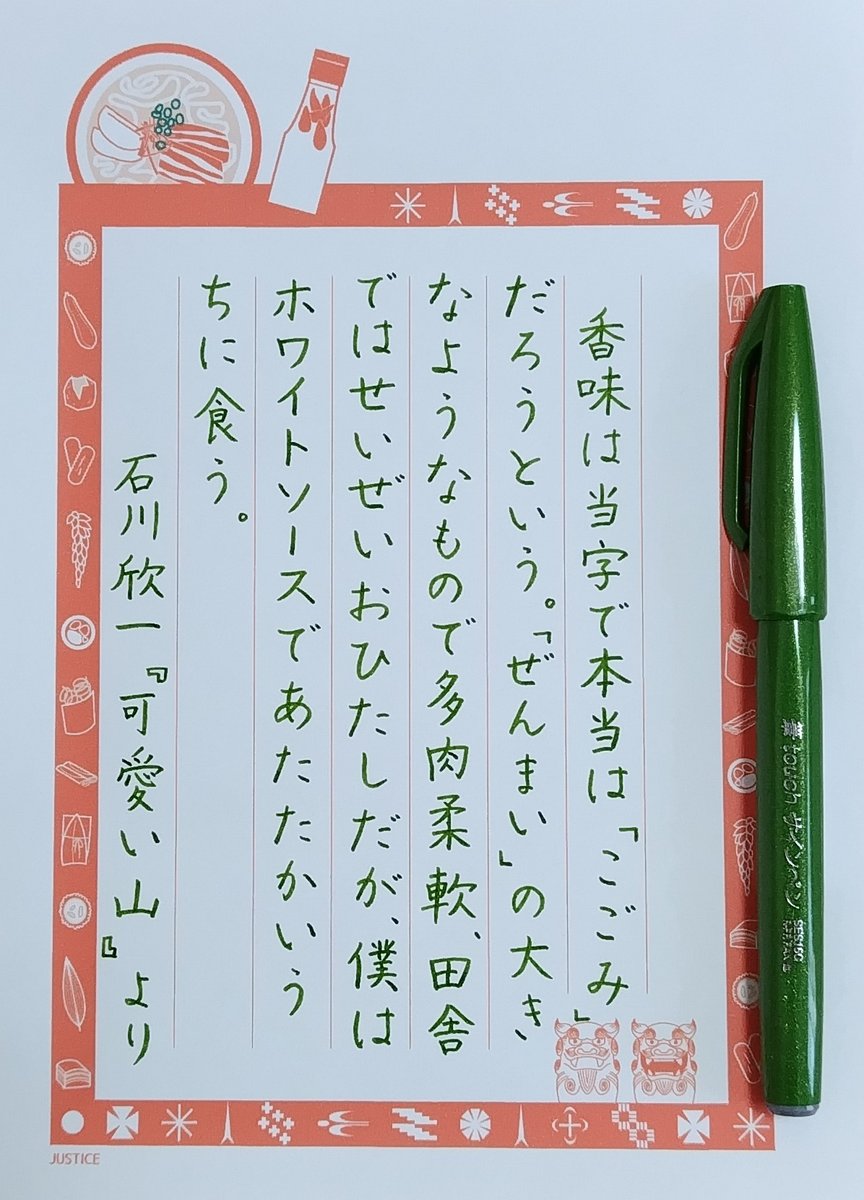 香味は当字で本当は「こごみ」
だろうという。「ぜんまい」の大き
なようなもので多肉柔軟、田舎
ではせいぜいおひたしだが、僕は
ホワイトソースであたたかいう
ちに食う。
石川欣一『可愛い山』より
筆touch サインペン
JUSTICE